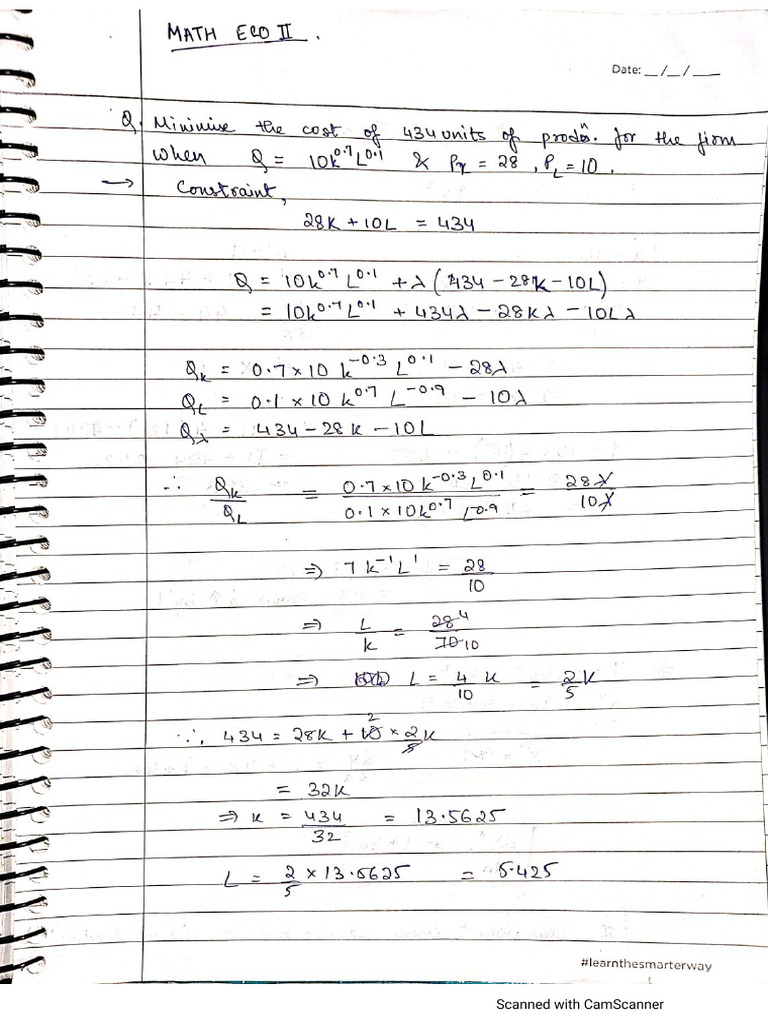 MATH ECO II.
Date: _/_/__
Q. Minimise the cost of 434 units of prodⁿ. for the firm
when Q = 10K^0.7 L^0.1 & P_K = 28, P_L = 10.
→ Constraint,
28K + 10L = 434
Q = 10K^0.7 L^0.1 + λ(434 - 28K - 10L)
= 10K^0.7 L^0.1 + 434λ - 28Kλ - 10Lλ
Q_K = 0.7 × 10 K^-0.3 L^0.1 - 28λ
Q_L = 0.1 × 10 K^0.7 L^-0.9 - 10λ
Q_λ = 434 - 28K - 10L
∴ Q_K/Q_L = (0.7 × 10 K^-0.3 L^0.1)/(0.1 × 10K^0.7 L^-0.9) = 28λ/10λ
⇒ 7 K^-1 L^1 = 28/10
⇒ L/K = 28 4/70 10
⇒ L = 4/10 K = 2/5 K
∴, 434 = 28K + 10 2 × 2/5 K
= 32K
⇒ K = 434/32 = 13.5625
L = 2/5 × 13.5625 = 5.425
#learnthesmarterway
Scanned with CamScanner